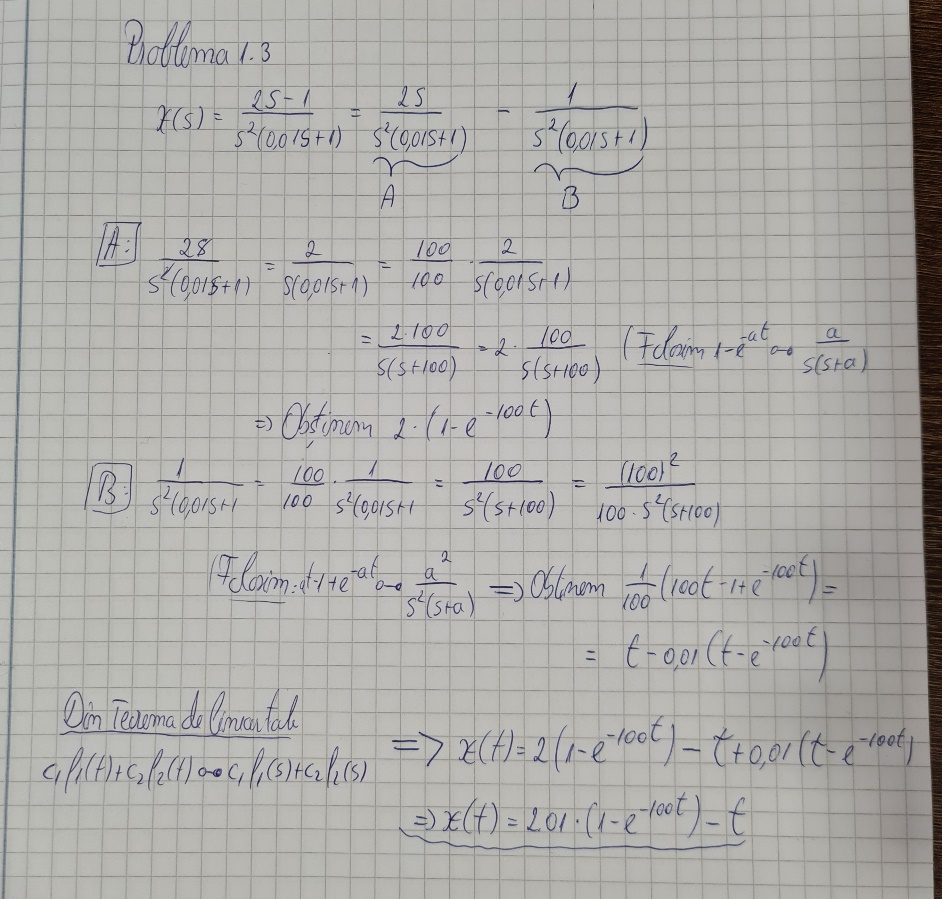 Problema 1.3
X(s) = \frac{2s-1}{s^2(0,01s+1)} = \frac{2s}{s^2(0,01s+1)} - \frac{1}{s^2(0,01s+1)}
A B
A: \frac{2s}{s^2(0,01s+1)} = \frac{2}{s(0,01s+1)} = \frac{100}{100} \cdot \frac{2}{s(0,01s+1)}
= \frac{2 \cdot 100}{s(s+100)} = 2 \cdot \frac{100}{s(s+100)} (Folosim 1-e^{-at} o-o \frac{a}{s(s+a)}
=> Obținem 2 \cdot (1-e^{-100t})
B: \frac{1}{s^2(0,01s+1} = \frac{100}{100} \cdot \frac{1}{s^2(0,01s+1} = \frac{100}{s^2(s+100)} = \frac{(100)^2}{100 \cdot s^2(s+100)}
(Folosim: at-1+e^{-at} o-o \frac{a^2}{s^2(s+a)} => Obținem \frac{1}{100}(100t-1+e^{-100t}) =
= t-0,01(t-e^{-100t})
Din Teorema de liniaritate
c_1f_1(t)+c_2f_2(t) o-o c_1f_1(s)+c_2f_2(s)
=> x(t) = 2(1-e^{-100t}) - t+0,01(t-e^{-100t})
=> x(t) = 2,01 \cdot (1-e^{-100t}) - t